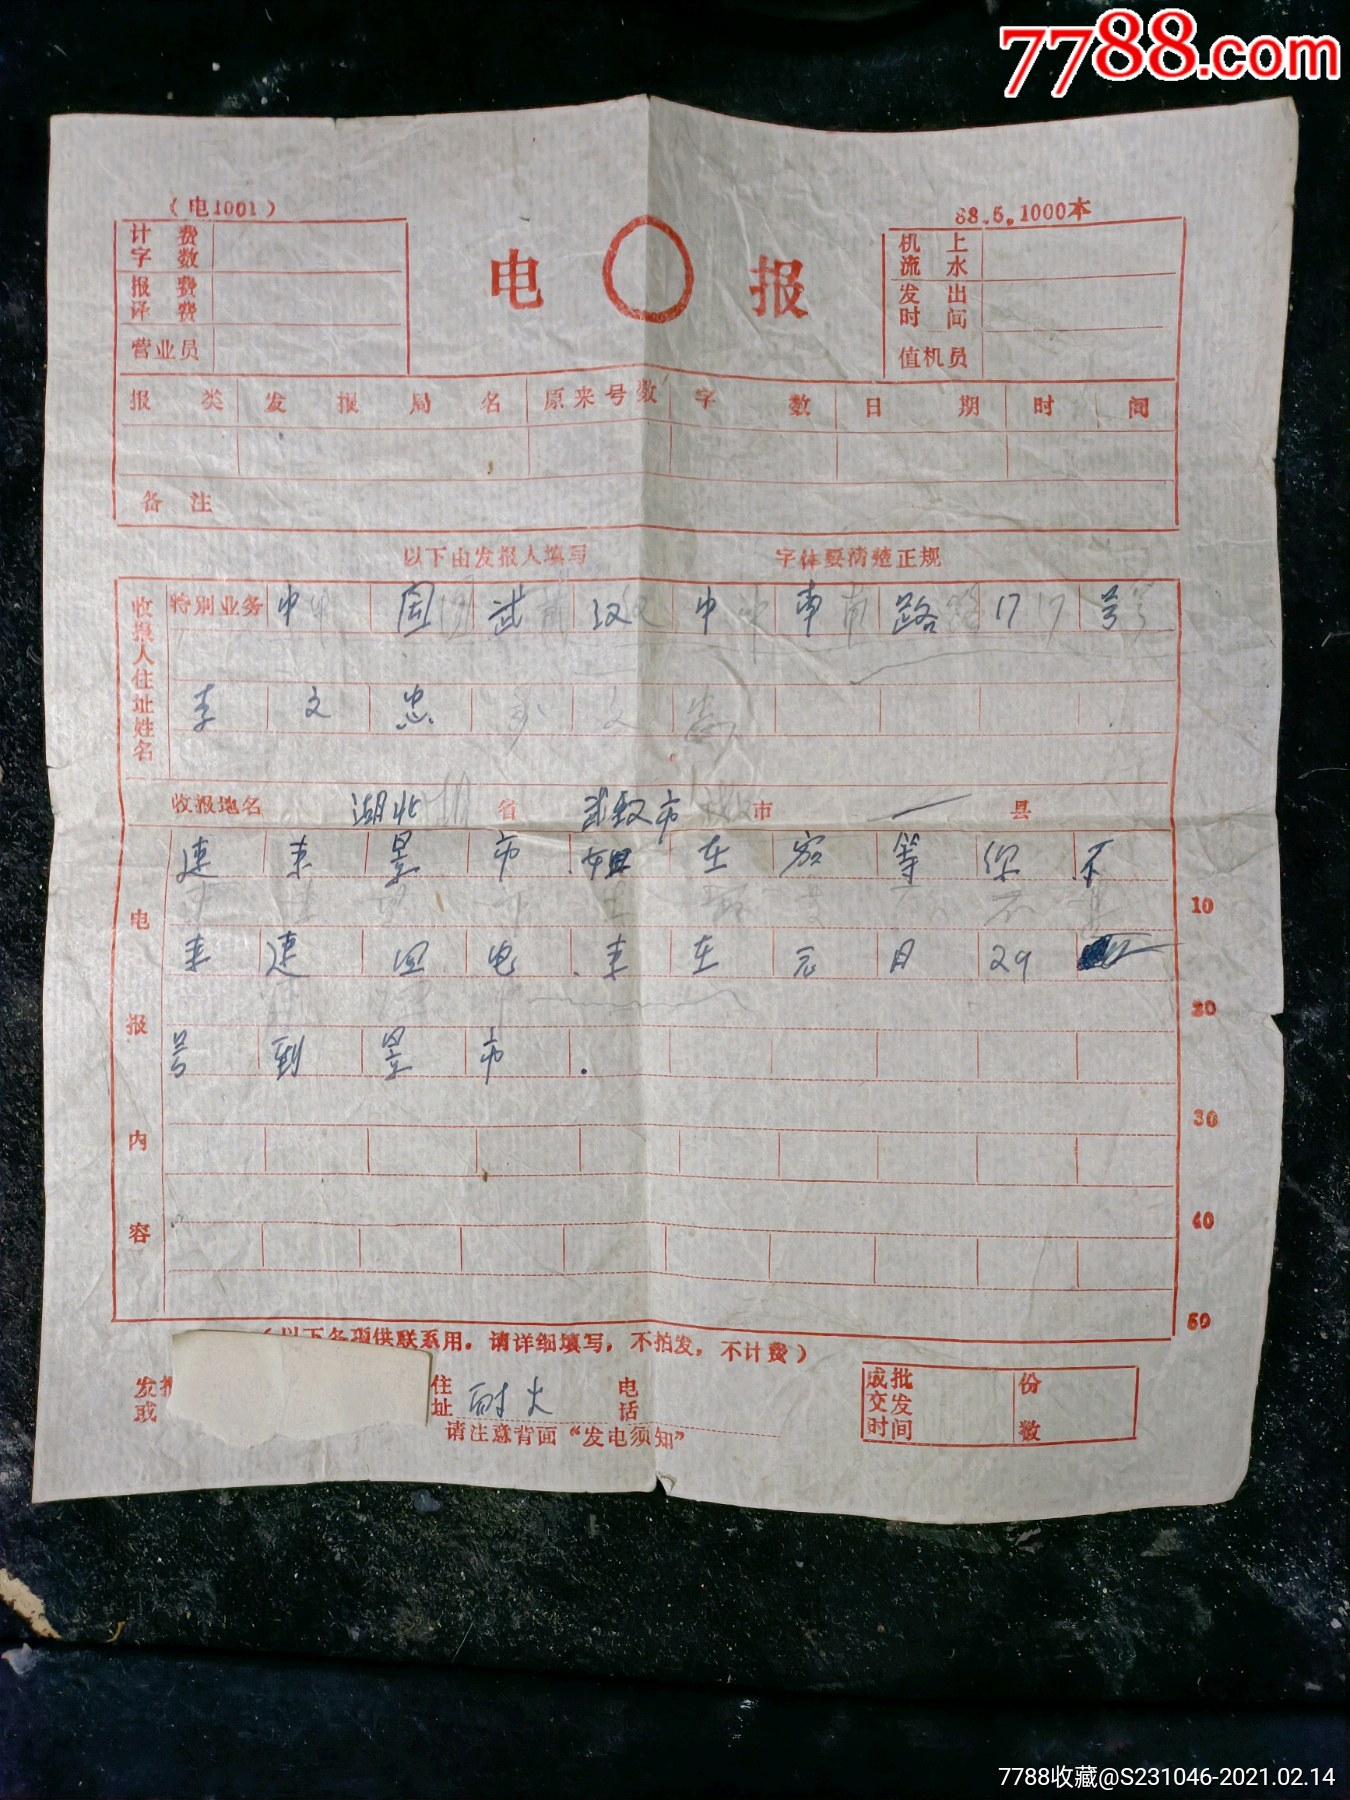 7788.com
（电1001）
88.5.1000本
计费字数
报费译费
营业员
电 报
机上流水
发出时间
值机员
报类 发报局名 原来号数 字数 日期 时间
备注
以下由发报人填写 字体要清楚正规
收报人住址姓名
特别业务 中国武汉中南路17号
李文忠
收报地名 湖北 省 武汉市 市 一 县
电报内容
速来昱市姐在家等你不
10
来速回电.来在元月29
20
号到昱市.
30
40
50
（以下各项供联系用，请详细填写，不拍发，不计费）
发报
或
住址 耐火 电话
请注意背面“发电须知”
成批交发时间 份数
7788收藏@S231046-2021.02.14